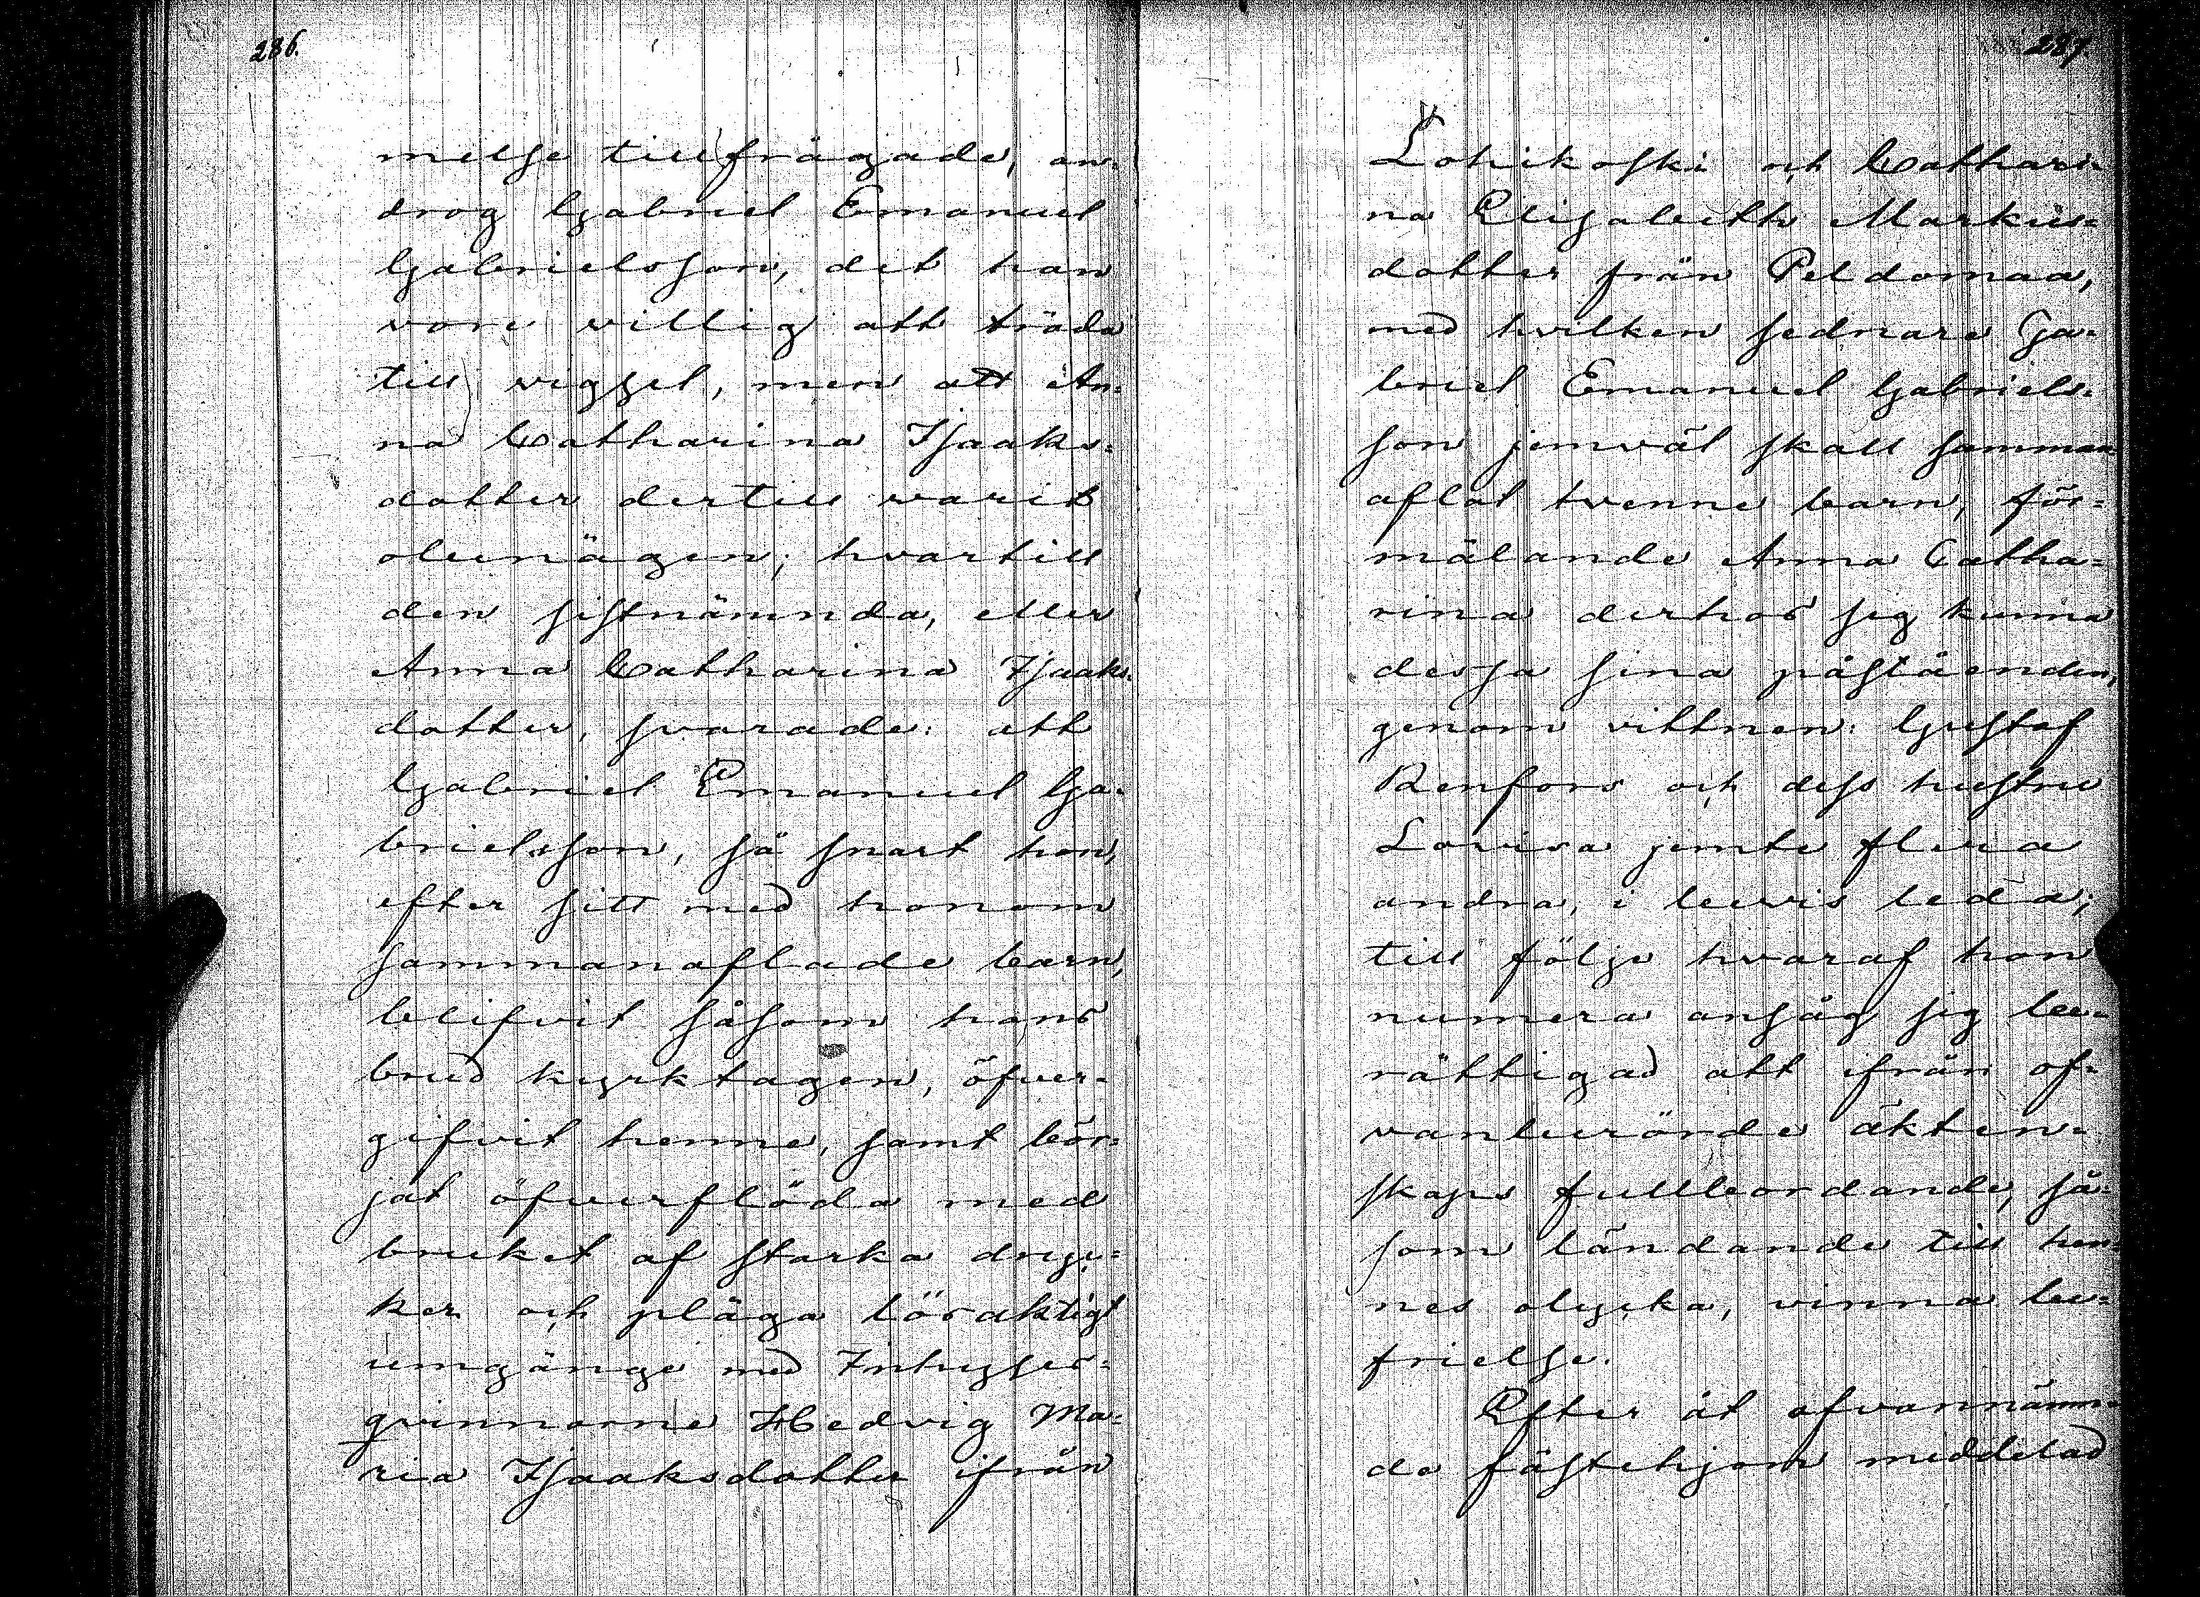 286.
melse tillfrågade, an-
drog Gabriel Emanuel
Gabrielsson, det han
vore villig att träda
till vigsel, men att An-
na Catharina Isaaks-
dotter dertill varit
obenägen; hvartill
den sistnämnda, eller
Anna Catharina Isaaks-
dotter, svarade: att
Gabriel Emanuel Ga-
brielsson, så snart hon,
efter sitt med honom
sammanaflade barn,
blifvit såsom hans
brud kyrktagen, öfver-
gifvit henne, samt bör-
jat öfverflöda med
bruket af starka dryc-
ker och pläga lösaktigt
umgänge med Inhyses-
qvinnorne Hedvig Ma-
ria Isaaksdotter ifrån
287.
Lohikoski och Cathari-
na Elisabeth Markus-
dotter från Peldomaa,
med hvilken sednare Ga-
briel Emanuel Gabriels-
son jemväl skall samman-
aflat tvenne barn, för-
mälande Anna Catha-
rina derhos sig kunna
dessa sina påståenden,
genom vittnen: Gustaf
Renfors och dess hustru
Lovisa jemte flera
andra, i bevis leda;
till följe hvaraf hon
numera ansåg sig be-
rättigad att ifrån of-
vanberörde äkten-
skaps fullbordande, så-
som ländande till hen-
nes olycka, vinna be-
frielse.
Efter åt ofvannämn-
de fästehjon meddelad